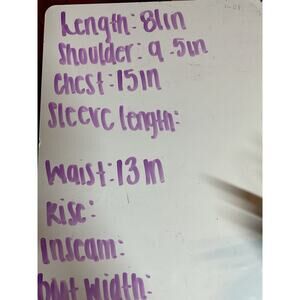 Length: 8in
Shoulder: 9.5in
Chest: 15in
Sleeve length:
Waist: 13in
Rise:
Inseam:
width: